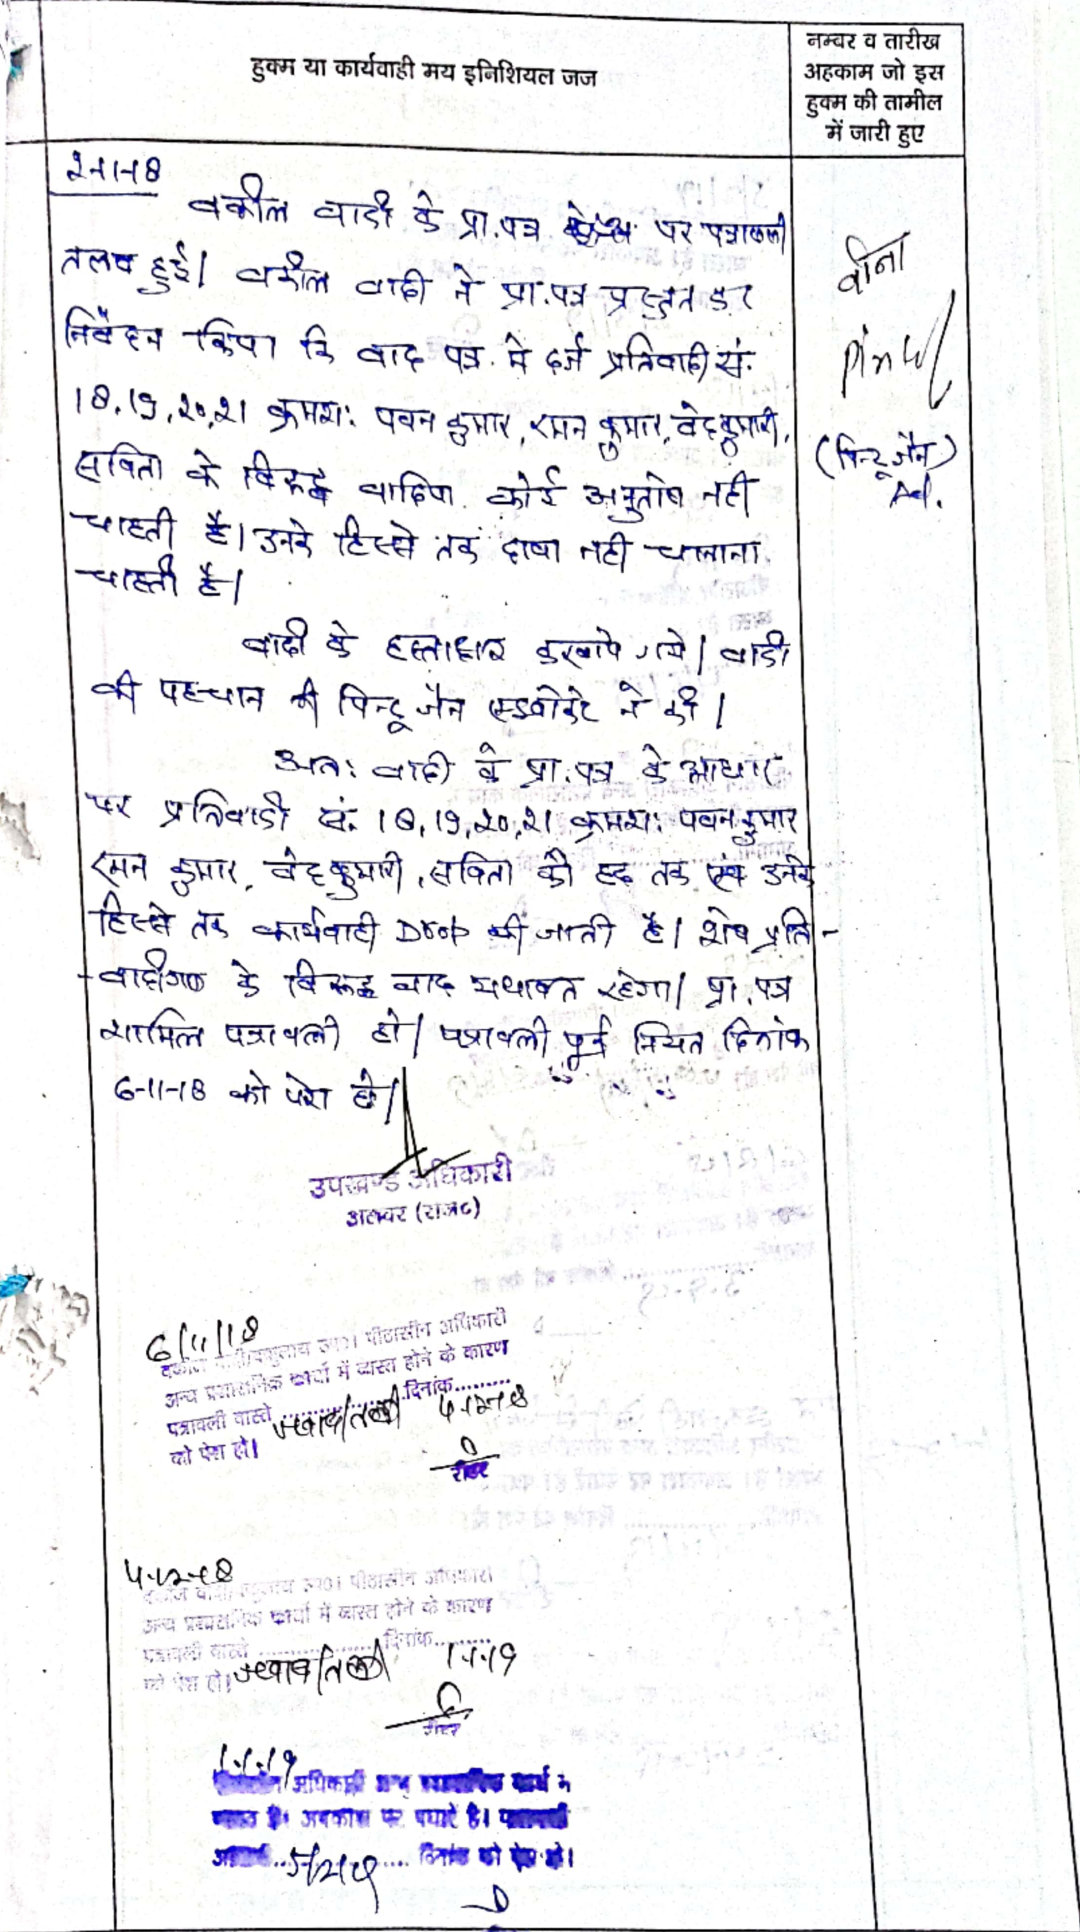 हुक्म या कार्यवाही मय इनिशियल जज
नम्बर व तारीख
अहकाम जो इस
हुक्म की तामील
में जारी हुए
2-11-18
वकील वादी के प्रा.पत्र पर पत्रावली
तलब हुई। वकील वादी ने प्रा.पत्र प्रस्तुत कर
निवेदन किया कि वाद पत्र में दर्ज प्रतिवादी सं.
18,19,20,21 क्रमशः पवन कुमार, रमन कुमार, वेदकुमारी,
सविता के विरुद्ध वादिया कोई अनुतोष नही
चाहती है। उनके हिस्से तक दावा नही चलाना
चाहती है।
वादी के हस्ताक्षर करवाये गये। वादी
की पहचान श्री पिन्टू जैन एडवोकेट ने की।
अतः वादी के प्रा.पत्र के आधार
पर प्रतिवादी सं. 18,19,20,21 क्रमशः पवन कुमार
रमन कुमार, वेदकुमारी, सविता की हद तक एवं उनके
हिस्से तक कार्यवाही Drop की जाती है। शेष प्रति-
-वादीगण के विरुद्ध वाद यथावत रहेगा। प्रा.पत्र
शामिल पत्रावली हो। पत्रावली पूर्व नियत दिनांक
6-11-18 को पेश हो।
वीना
(पिन्टू जैन)
Ad.
उपखण्ड अधिकारी
अलवर (राज०)
6/11/18
वकील उप०। पीठासीन अधिकारी
अन्य प्रशासनिक कार्यो में व्यस्त होने के कारण
पत्रावली वास्ते ............ दिनांक.........
जवाब/तलबी 4-12-18
को पेश हो।
रीडर
4-12-18
वकील उप०। पीठासीन अधिकारी
अन्य प्रशासनिक कार्यो में व्यस्त होने के कारण
पत्रावली वास्ते ............ दिनांक.........
को पेश हो। जवाब/तलबी 1-1-19
रीडर
1-1-19
अधिकारी अन्य कार्य में
है। अवकाश पर पधारे है।
दिनांक को पेश हो।